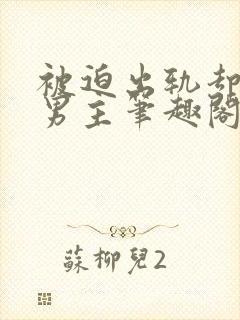 被迫出轨却
男主筆趣閣
蘇柳兒2